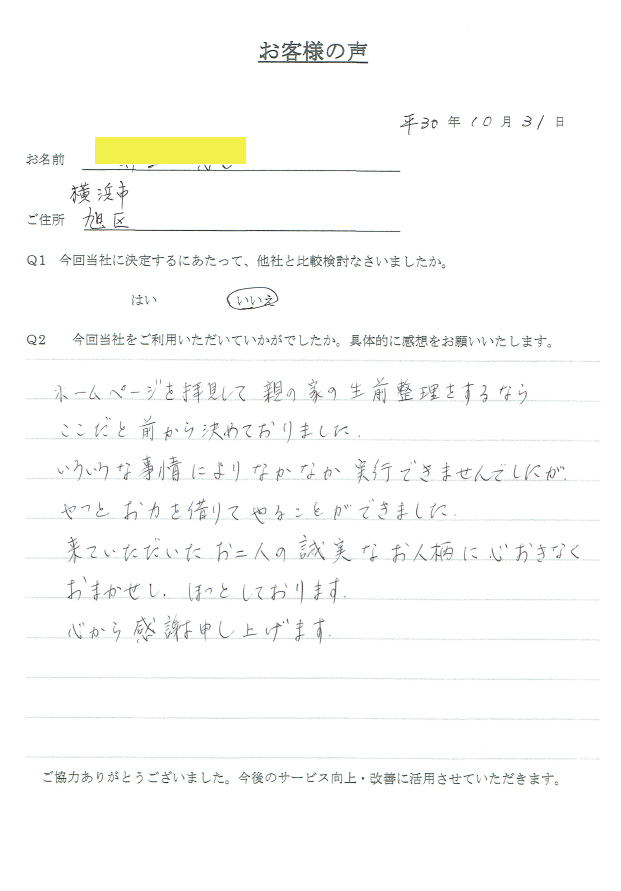 お客様の声
平30年10月31日
お名前
横浜市
ご住所 旭区
Q1 今回当社に決定するにあたって、他社と比較検討なさいましたか。
はい いいえ
Q2 今回当社をご利用いただいていかがでしたか。具体的に感想をお願いいたします。
ホームページを拝見して 親の家の生前整理をするなら
ここだと前から決めておりました.
いろいろな事情によりなかなか実行できませんでしたが.
やっと お力を借りて やることができました.
来ていただいた お二人の誠実なお人柄に心おきなく
おまかせし、ほっとしております.
心から感謝申し上げます.
ご協力ありがとうございました。今後のサービス向上・改善に活用させていただきます。